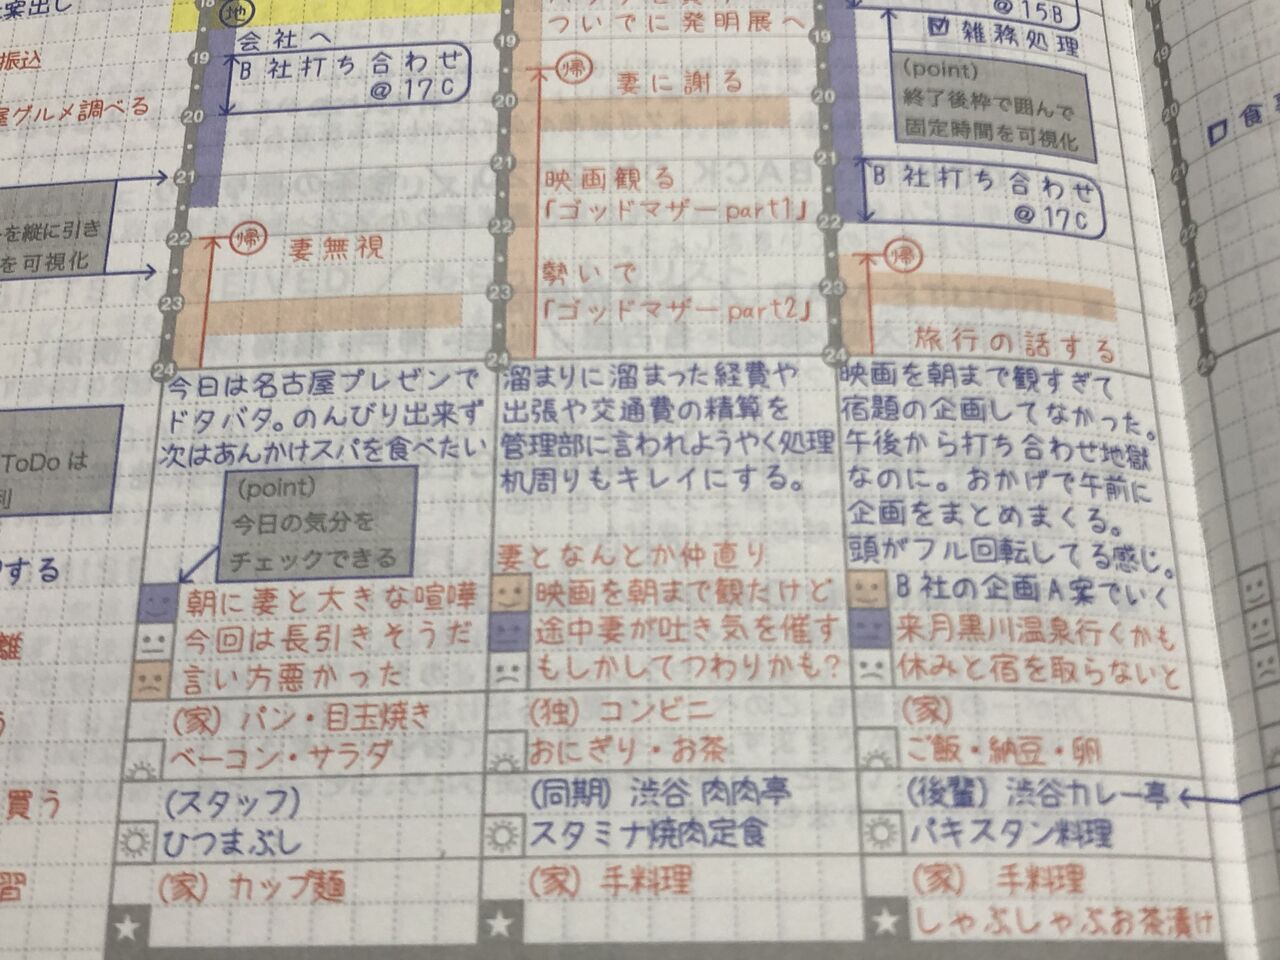 案出し
振込
屋グルメ調べる
を縦に引き
を可視化
ToDo は
する
買う
18
地
会社へ
19
B社打ち合わせ
@17C
20
21
22
帰
妻無視
23
24
今日は名古屋プレゼンで
ドタバタ。のんびり出来ず
次はあんかけスパを食べたい
(point)
今日の気分を
チェックできる
朝に妻と大きな喧嘩
今回は長引きそうだ
言い方悪かった
(家) パン・目玉焼き
ベーコン・サラダ
(スタッフ)
ひつまぶし
(家) カップ麺
ついでに発明展へ
19
帰
妻に謝る
20
21
映画観る
「ゴッドマザーpart1」
22
勢いで
23
「ゴッドマザーpart2」
24
溜まりに溜まった経費や
出張や交通費の精算を
管理部に言われようやく処理
机周りもキレイにする。
妻となんとか仲直り
映画を朝まで観たけど
途中妻が吐き気を催す
もしかしてつわりかも?
(独) コンビニ
おにぎり・お茶
(同期) 渋谷 肉肉亭
スタミナ焼肉定食
(家) 手料理
@15B
19
雑務処理
(point)
終了後枠で囲んで
固定時間を可視化
20
21
B社打ち合わせ
@17C
22
帰
23
旅行の話する
24
映画を朝まで観すぎて
宿題の企画してなかった。
午後から打ち合わせ地獄
なのに。おかげで午前に
企画をまとめまくる。
頭がフル回転してる感じ。
B社の企画A案でいく
来月黒川温泉行くかも
休みと宿を取らないと
(家)
ご飯・納豆・卵
(後輩) 渋谷カレー亭
パキスタン料理
(家) 手料理
しゃぶしゃぶお茶漬け
19
20
21
22
23
24
食